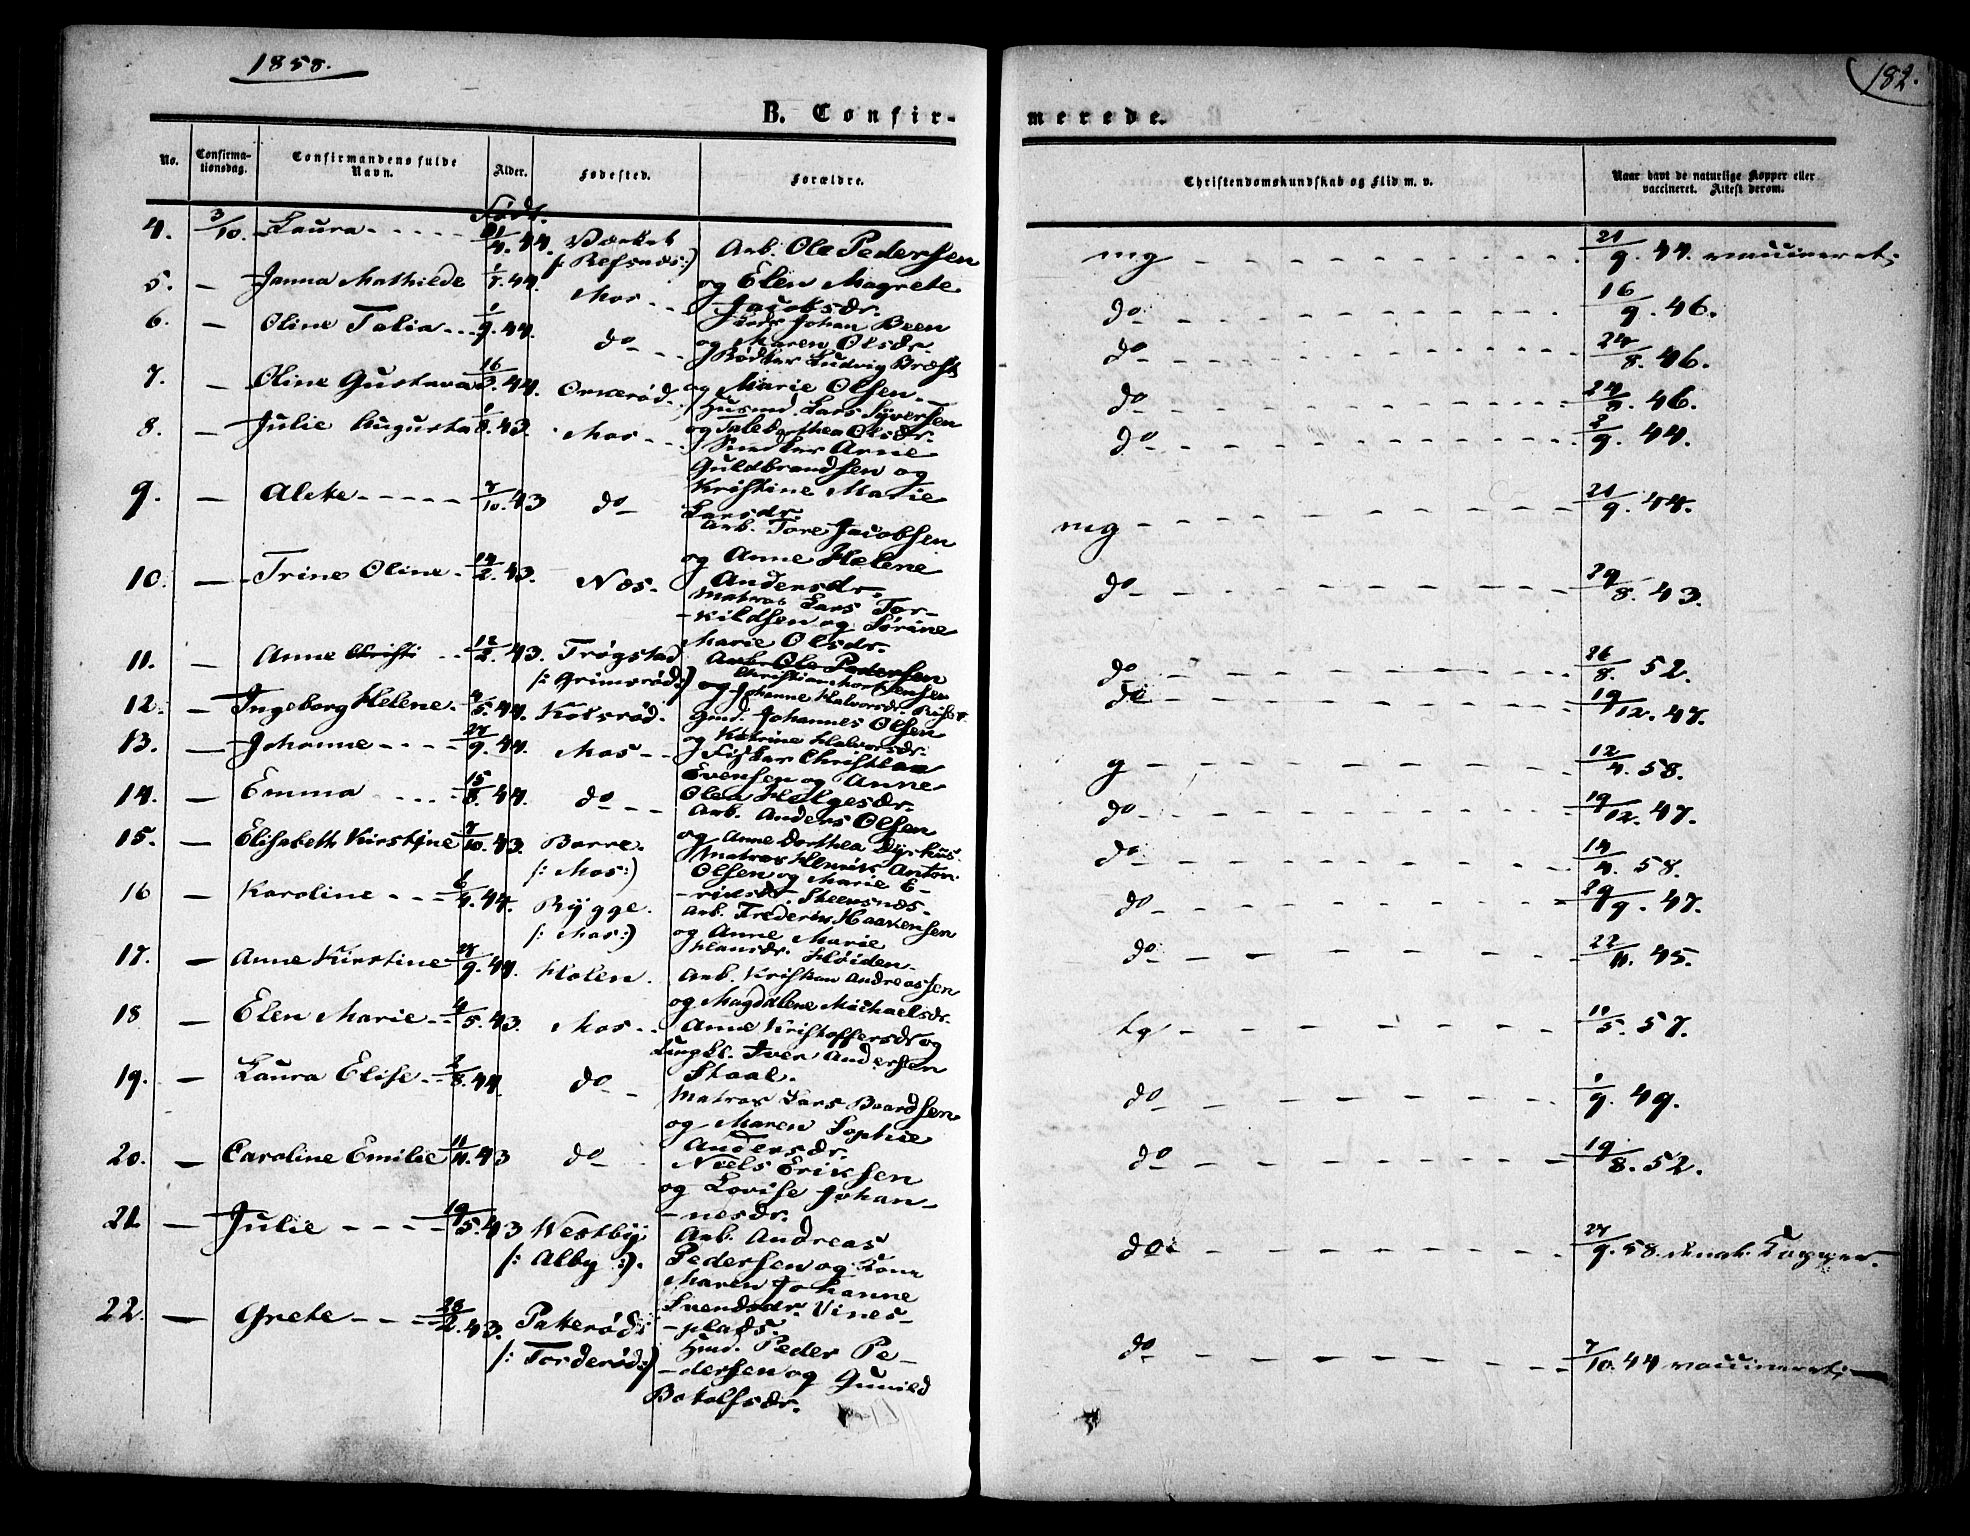 1858.
182.
B. Confir-
merede.
No.
Confirma-
tionsdag.
Confirmandens fulde
Navn.
Alder.
Fødested.
Forældre.
Christendomskundskab og Flid m. v.
Naar havt de naturlige Kopper eller
vaccineret. Attest derom.
Født.
4. 3/10. Laura 21/4. 44. Værket
(: Refsnæs :) Arb. Ole Pedersen
og Elen Magrete
Jacobsdr. mg 21/9. 44. vaccineret;
5. — Janna Mathilde 44. Mos Johan Been
og Maren Olsdr. do 16/9. 46.
6. — Oline Talia 1/9. 44. do Bødker Ludvig
og Marie Olsen do 24/8. 46.
7. — Oline Gustava 44. Orkerød. Husmd. Lars Syversen
og Taleborthea Olsdr. do 46.
8. — Julie Augusta 43. Mos Arne
Guldbrandsen og
Kristine Marie
Larsdr. do 2/9. 44.
9. — Alete 7/10. 43 do Arb. Tore Jacobsen
og Anne Helene
Andersdr. mg 21/9. 44.
10. — Trine Oline 14/2. 43. Næs. Matros Lars Tor-
-kildsen og Sørine
Marie Olsdr. do 29/8. 43.
11. — Anne Kristi 12/2. 43. Trøgstad
(: Grimsrød :) Arb. Ole Pedersen
Christian Mortensen
og Johanne Halvorsdr. do 26/8. 52.
12. — Ingeborg Helene 44. Kolsrød. Gmd. Johannes Olsen
og Katrine Halvorsdr. do 19/12. 47.
13. — Johanne 27/9. 44. Mos Fisker Christian
Evensen og Anne
Olea Helgesdr. g 12/4. 58.
14. — Emma 15/8. 44. do Arb. Anders Olsen
og Anne Dorthea do 19/12. 47.
15. — Elisabeth Kirstine 7/10. 43. Borre.
(: Mos :) Matros Henrik Anton
Olsen og Marie E-
-riksdr. Steensnæs. do 14/4. 58.
16 — Karoline 44. Rygge.
(: Mos :) Arb. Frederik Haakensen
og Anne Marie
Hansdr. Høiden. do 29/9. 47.
17. — Anne Kirstine 9. 44. Holen. Arb. Kristian Andreassen
og Magdalene Michaelsdr. do 45.
18 — Elen Marie 4/5. 43. Mos Anne Kristoffersdr og
Ungkl. Iver Andersen
Staal. tg 5. 57.
19. — Laura Elise 2/8. 44. do Matros Lars Baardsen
og Maren Sophie
Andersdr. do 9. 49.
20. — Caroline Emilie 43 do Niels Eriksen
og Lovise Johan-
-nesdr. do 19/8. 52.
21 — Julie 19/5. 43 Westby
(: Alby :). Arb. Andreas
Pedersen og Kone
Maren Johanne
Svendsdr. Vines-
-plads. do 27/9. 58. Kopper.
22. — Grete 2. 43. Pakerød
(: Torderød :) Hmd. Peder Pe-
-dersen og Gunild
Botolfsdr. do 7/10. 44 vaccineret;